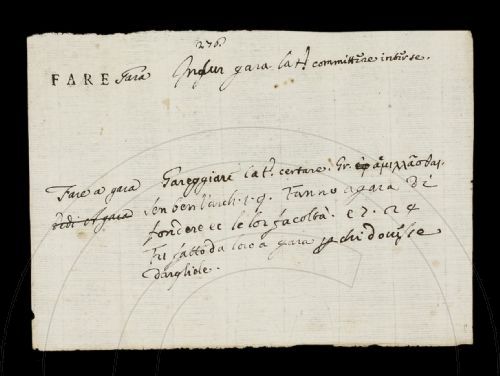 276.
FARE Gara Ingur gara Lat. committere inter se.
Fare a gara Gareggiare Lat. certare. Gr. ἁμιλλᾶσθαι.
Vedi A gara Sen. ben. Varch. 1. 9. Fanno a gara di
fondere ec le lor facoltà. E 7. 24
Fu fatto da loro a gara chi dovesse
dargliele.